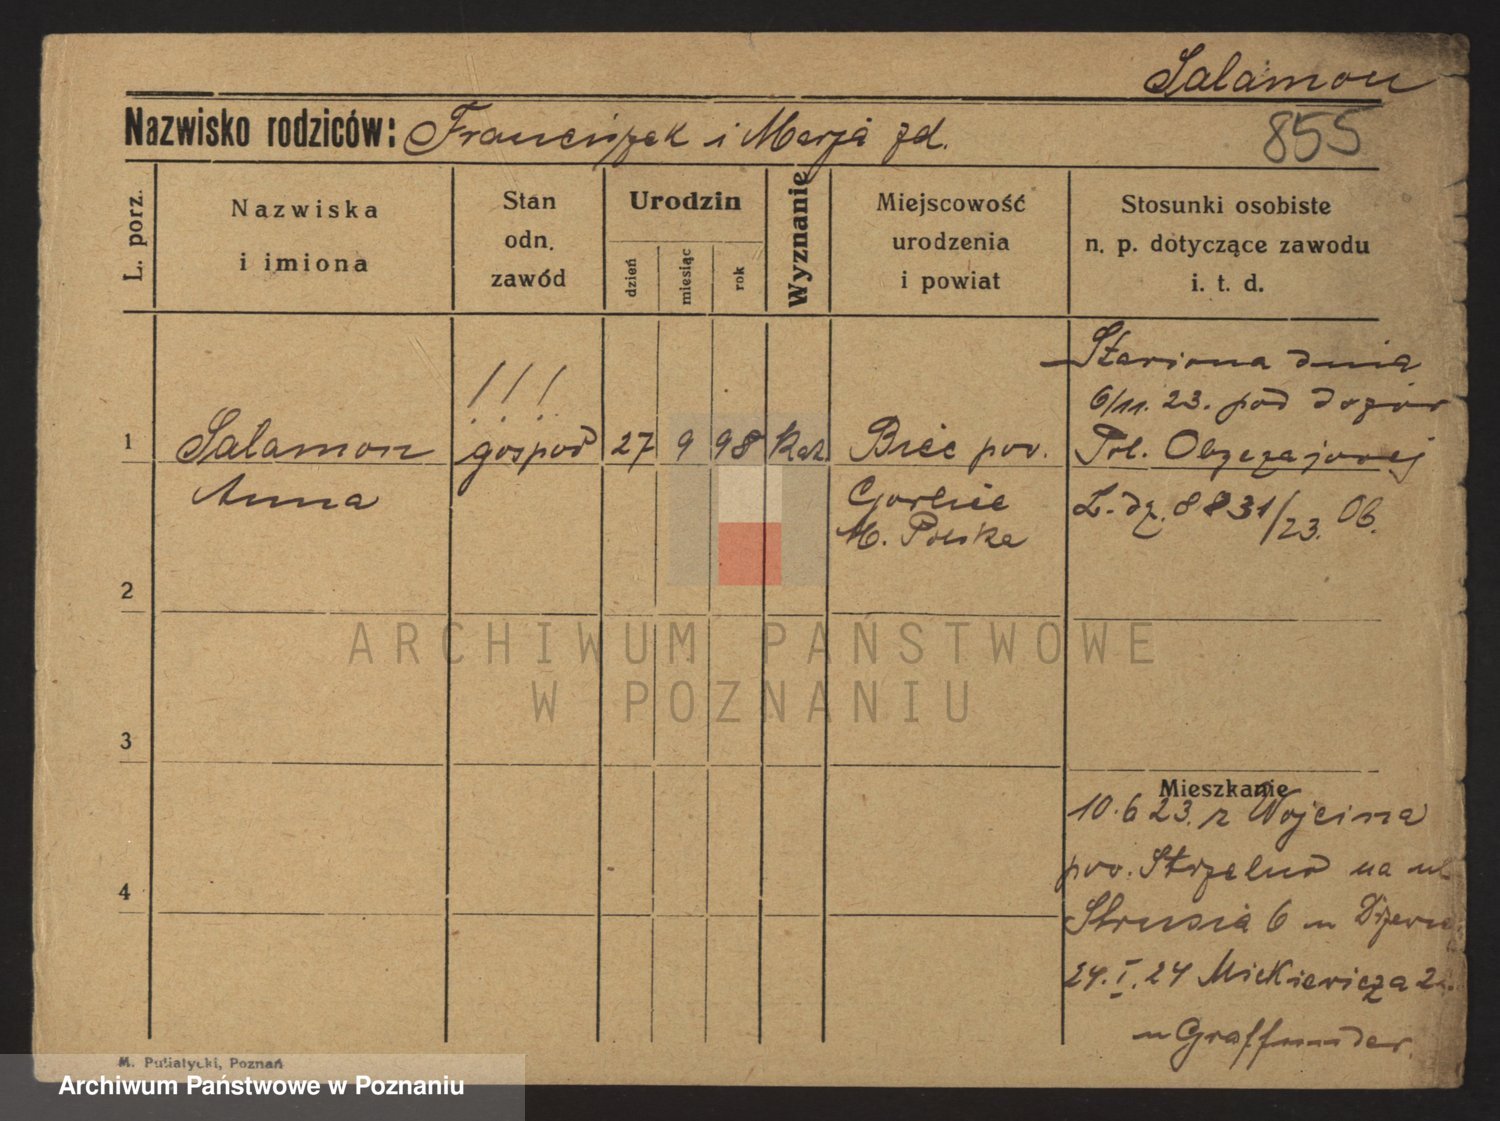 Salamon
Nazwisko rodziców: Franciszek i Marja zd.
855
L. porz.
Nazwiska
i imiona
Stan
odn.
zawód
Urodzin
dzień
miesiąc
rok
Wyznanie
Miejscowość
urodzenia
i powiat
Stosunki osobiste
n. p. dotyczące zawodu
i. t. d.
1
Salamon
Anna
! ! !
gospod
27
9
98
Kat
Biec pow.
Gorlice
M. Polska
dnia
6/11. 23. pod dozór
Pol. Obyczajowej
L. dz. 8831/23. Ob.
2
3
4
Mieszkanie
10.6 23. z Wójcina
pow. Strzelno na ul
Strusia 6 u
24. I. 24 Mickiewicza
u Graffunder.
M. Putiatycki, Poznań
ARCHIWUM PAŃSTWOWE
W POZNANIU
Archiwum Państwowe w Poznaniu